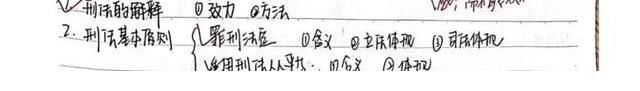 刑法的解释 ①效力 ②方法
2. 刑法基本原则 { 罪刑法定 ①含义 ②立法体现 ③司法体现
适用刑法人人平等: ①含义 ②体现